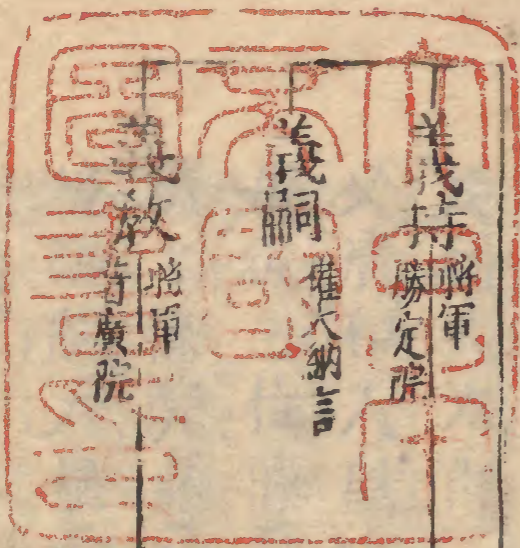 義持 将軍
勝定院
義嗣 権大納言
義教 将軍
普廣院